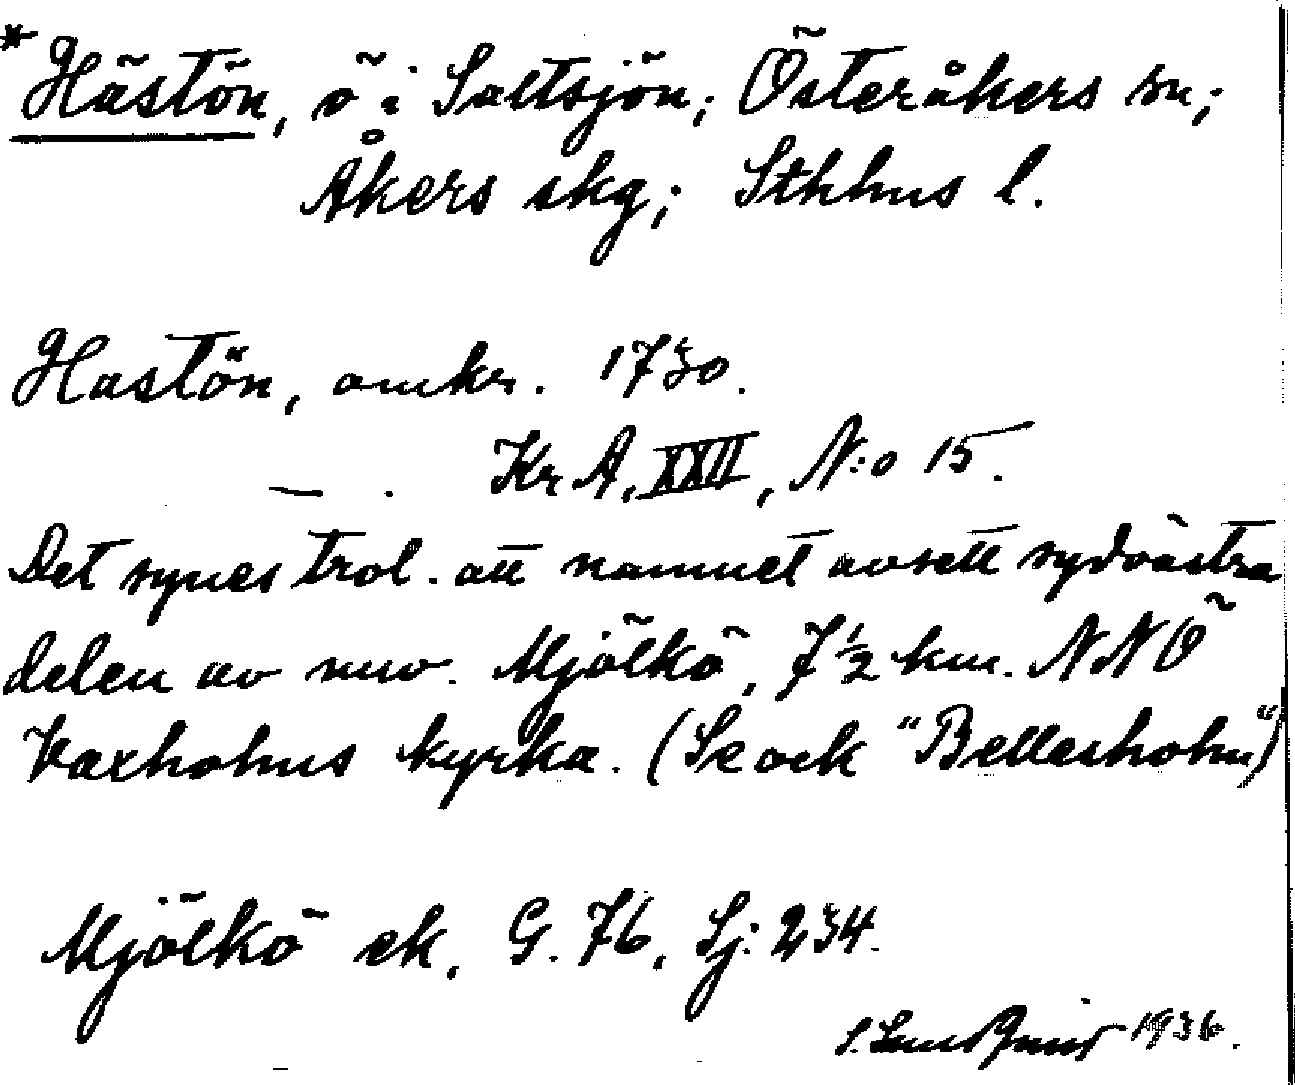 *Hästön, ö i Saltsjön; Österåkers sn;
Åkers skg; Sthlms l.
Hastön, omkr. 1730.
— . Kr. A, XXII, N:o 15.
Det synes trol. att namnet avsett sydvästra
delen av nuv. Mjölkö, 7½ km. NNÖ
Vaxholms kyrka. (Se ock "Bellesholm")
Mjölkö ek. G. 76, Sj: 234.
S. Lundqvist 1936.